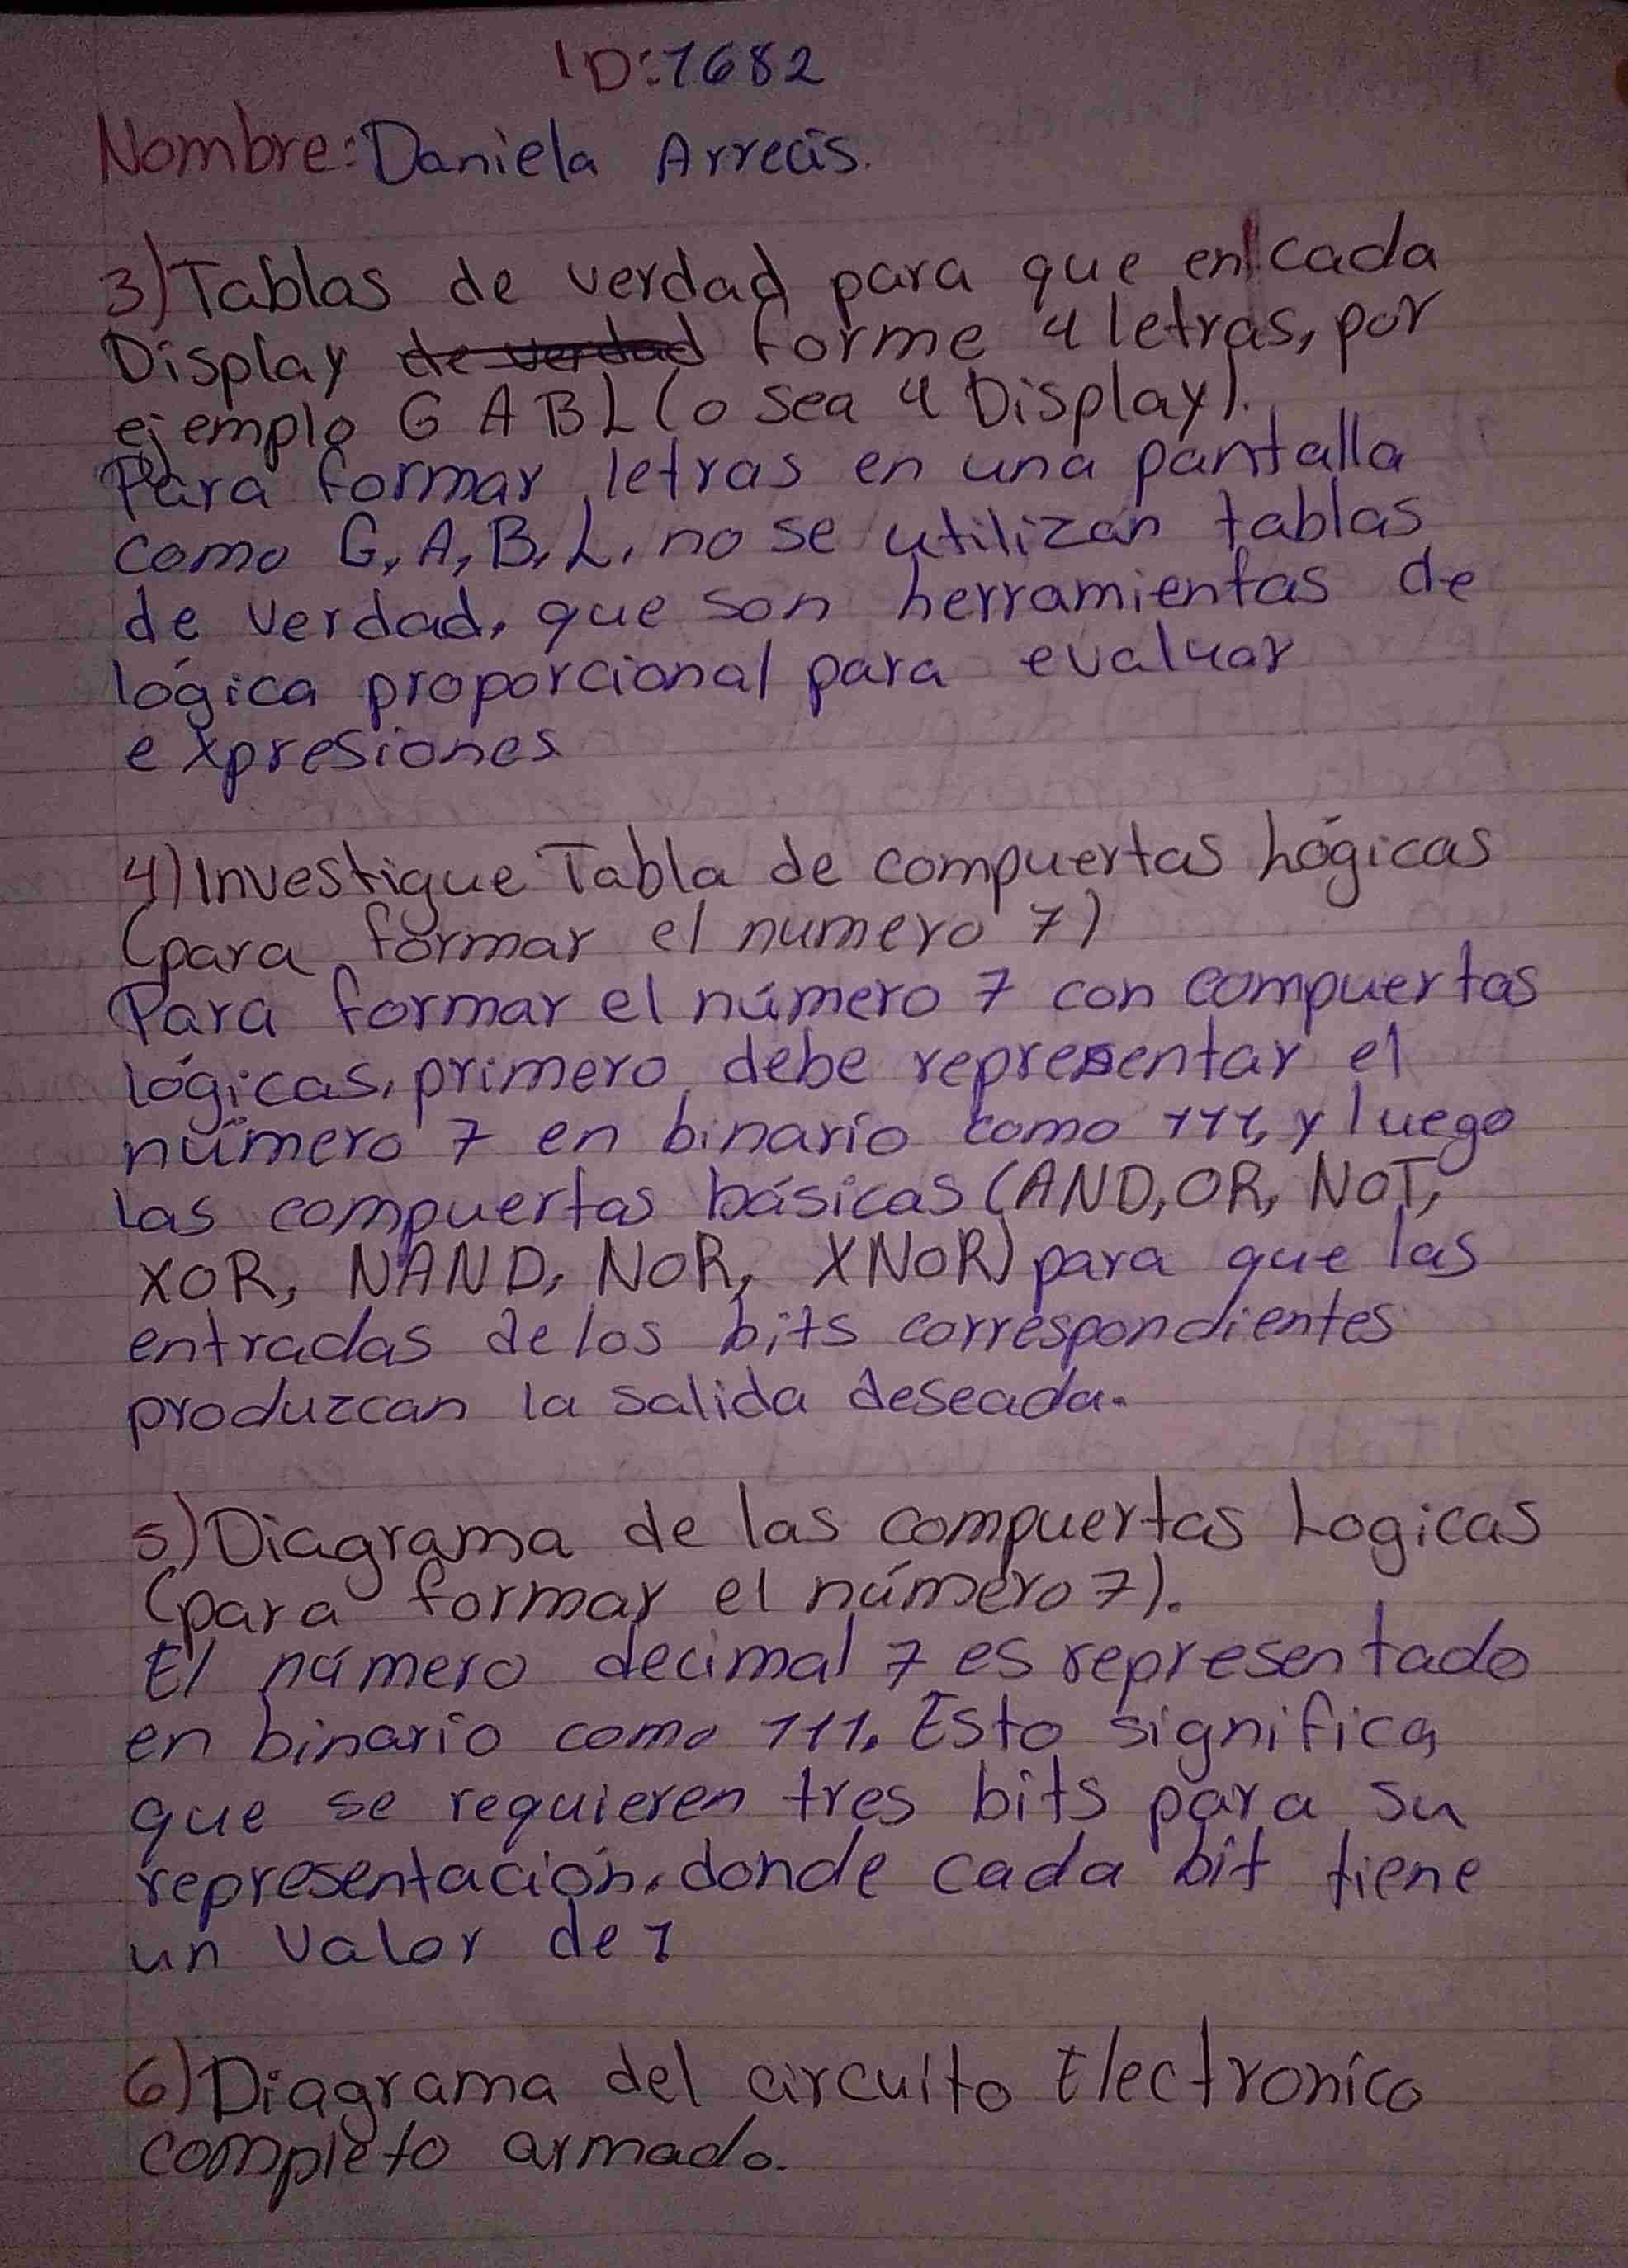 ID:1682
Nombre: Daniela Arrecis.
3) Tablas de verdad para que en cada
Display de verdad forme 4 letras, por
ejemplo G A B L (o sea 4 Display).
Para formar letras en una pantalla
como G, A, B, L, no se utilizan tablas
de verdad, que son herramientas de
lógica proporcional para evaluar
expresiones
4) Investigue Tabla de compuertas Lógicas
(para formar el numero 7)
Para formar el número 7 con compuertas
lógicas, primero debe representar el
número 7 en binario como 111, y luego
las compuertas básicas (AND, OR, NOT,
XOR, NAND, NOR, XNOR) para que las
entradas de los bits correspondientes
produzcan la salida deseada.
5) Diagrama de las compuertas Logicas
(para formar el número 7).
El número decimal 7 es representado
en binario como 111. Esto significa
que se requieren tres bits para su
representación, donde cada bit tiene
un valor de 1
6) Diagrama del circuito Electronico
completo armado.